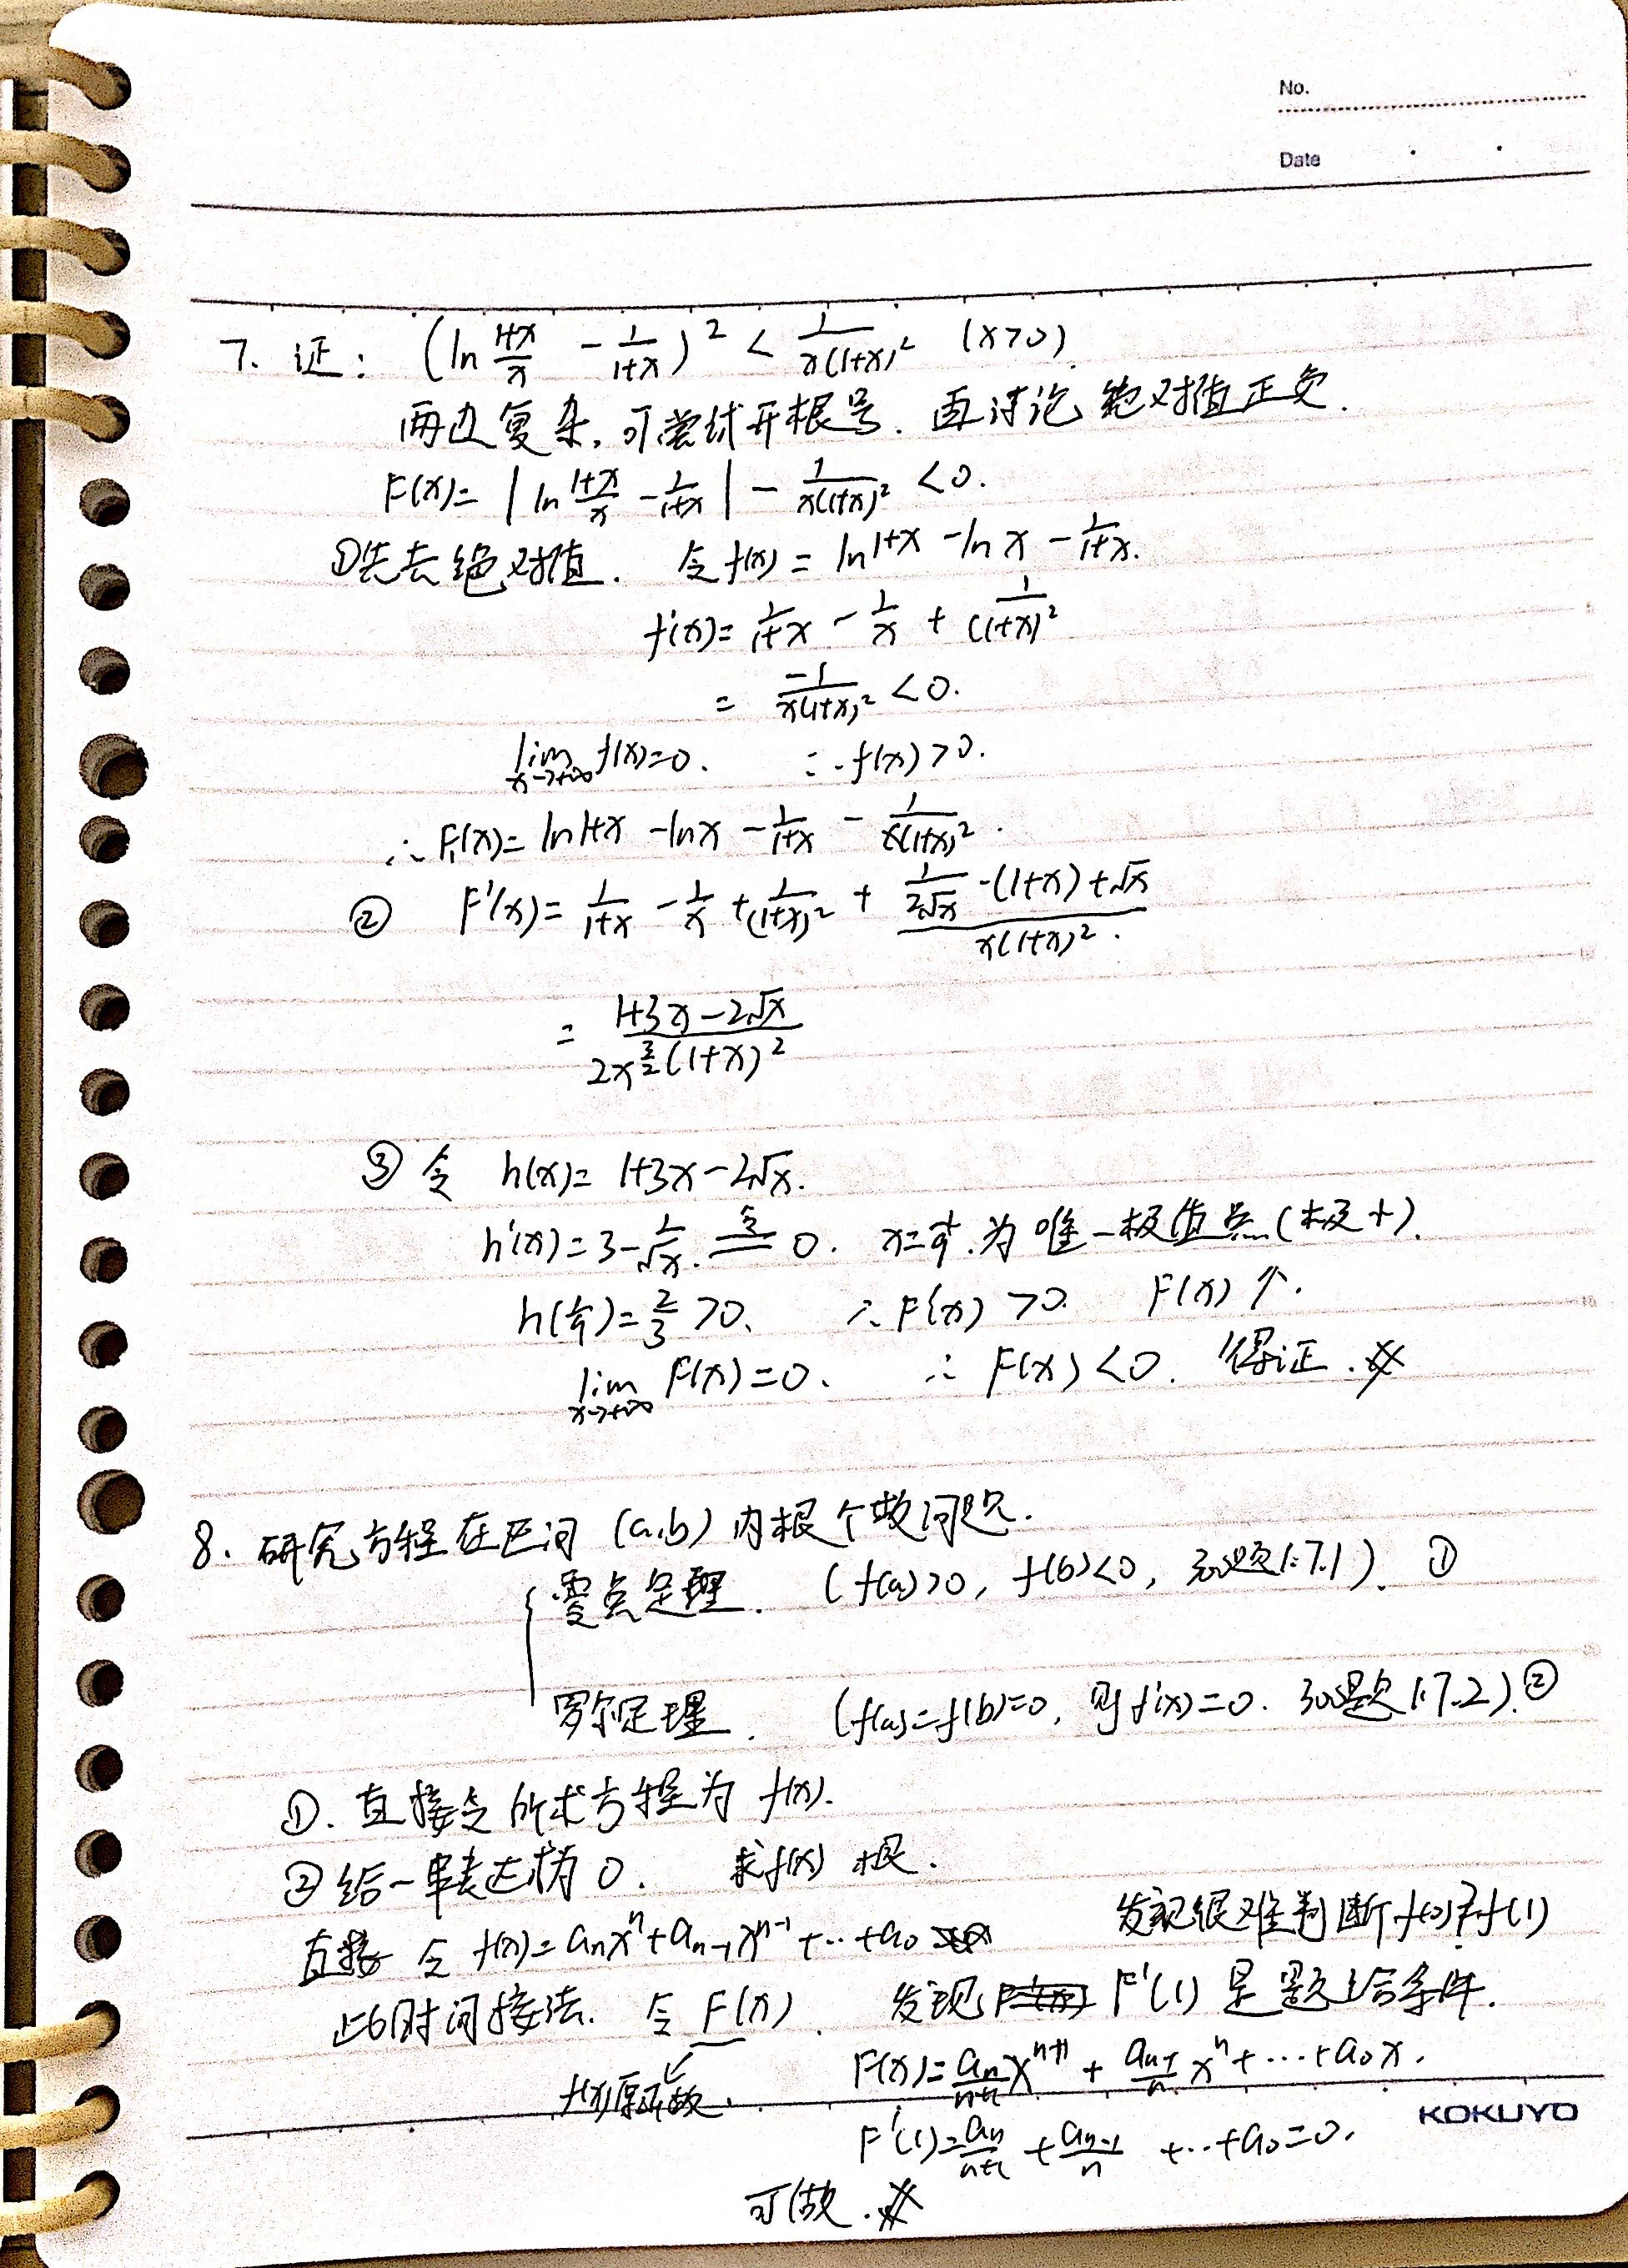 No.
Date
7. 证: (ln (1+x)/x - 1/(1+x))² < 1/(x(1+x)²) (x>0)
两边复杂, 可尝试开根号. 再讨论绝对值正负.
F(x)= |ln (1+x)/x - 1/(1+x)| - 1/(x(1+x)²) <0.
①先去绝对值. 令f(x) = ln1+x - ln x - 1/(1+x).
f'(x)= 1/(1+x) - 1/x + 1/(1+x)²
= -1/(x(1+x)²) <0.
lim x→+∞ f(x)=0. ∴f(x)>0.
∴F(x)= ln1+x - lnx - 1/(1+x) - 1/(x(1+x)²).
② F'(x)= 1/(1+x) - 1/x + 1/(1+x)² + (1/(2√x)·(1+x)+√x)/(x(1+x)²).
= (1+3x-2√x)/(2x^(3/2)(1+x)²)
③ 令 h(x)= 1+3x-2√x.
h'(x)=3-1/√x. 令== 0. x=1/9. 为唯一极值点(极小).
h(1/9)=2/3>0. ∴F'(x) >0. F(x)↑.
lim x→+∞ F(x)=0. ∴ F(x)<0. 得证.
8. 研究方程在区间 (a,b) 内根个数问题.
零点定理. (f(a)>0, f(b)<0, 300题1.7.1). ①
罗尔定理. (f(a)=f(b)=0, 则f'(x)=0. 300题1.7.2).②
①. 直接令所求方程为 f(x).
②给一串表达式为0. 求f(x) 根.
直接 令 f(x)=aₙxⁿ+aₙ₋₁xⁿ⁻¹+…+a₀ 发现很难判断f(0)?f(1)
此时间接法. 令 F(x). 发现 F'(1) 是题给条件.
F(x)= aₙ/(n+1) xⁿ⁺¹ + aₙ₋₁/n xⁿ+…+a₀x.
f(x)原函数.
KOKUYO
F'(1)= aₙ/(n+1) + aₙ₋₁/n +…+a₀=0.
可做.